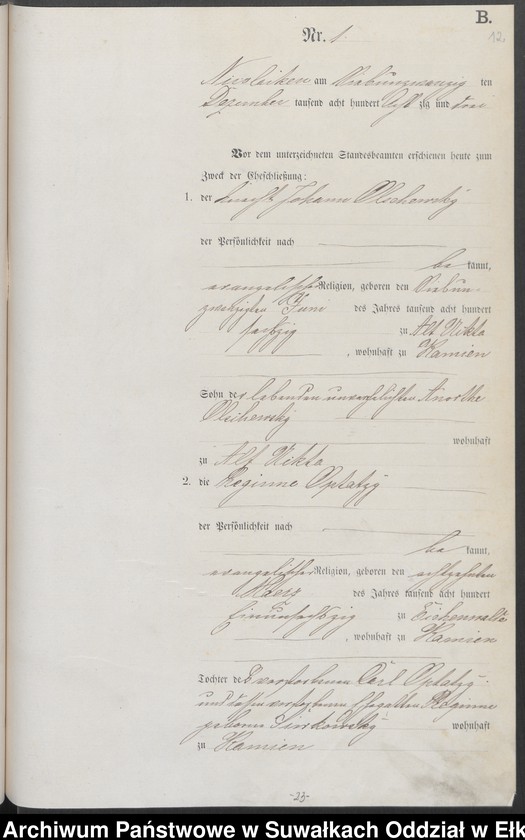 B.
12.
Nr. 1
Nicolaiken am Siebenundzwanzig ten
Dezember tausend acht hundert acht zig und drei
Vor dem unterzeichneten Standesbeamten erschienen heute zum
Zweck der Eheschließung:
1. der Knecht Johann Olschewsky
der Persönlichkeit nach
be kannt,
evangelischer Religion, geboren den Sieben-
zwanzigsten Juni des Jahres tausend acht hundert
sechzig zu Alt Ukta
, wohnhaft zu Kamien
Sohn der lebenden unverehelichten
Olschewsky
wohnhaft
zu Alt Ukta
2. die Regine Opalatzy
der Persönlichkeit nach
be kannt,
evangelischer Religion, geboren den achtzehnten
Maerz des Jahres tausend acht hundert
einundsechzig zu Eichenwalde
, wohnhaft zu Kamien
Tochter des verstorbenen Carl
und dessen verstorbenen Ehegattin Regine
geborne wohnhaft
zu Kamien
-23-
Archiwum Państwowe w Suwałkach Oddział w Ełk